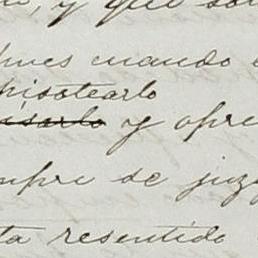 y que
pues cuando
pisotearlo
y opre
mpre se juzg
ta resentido